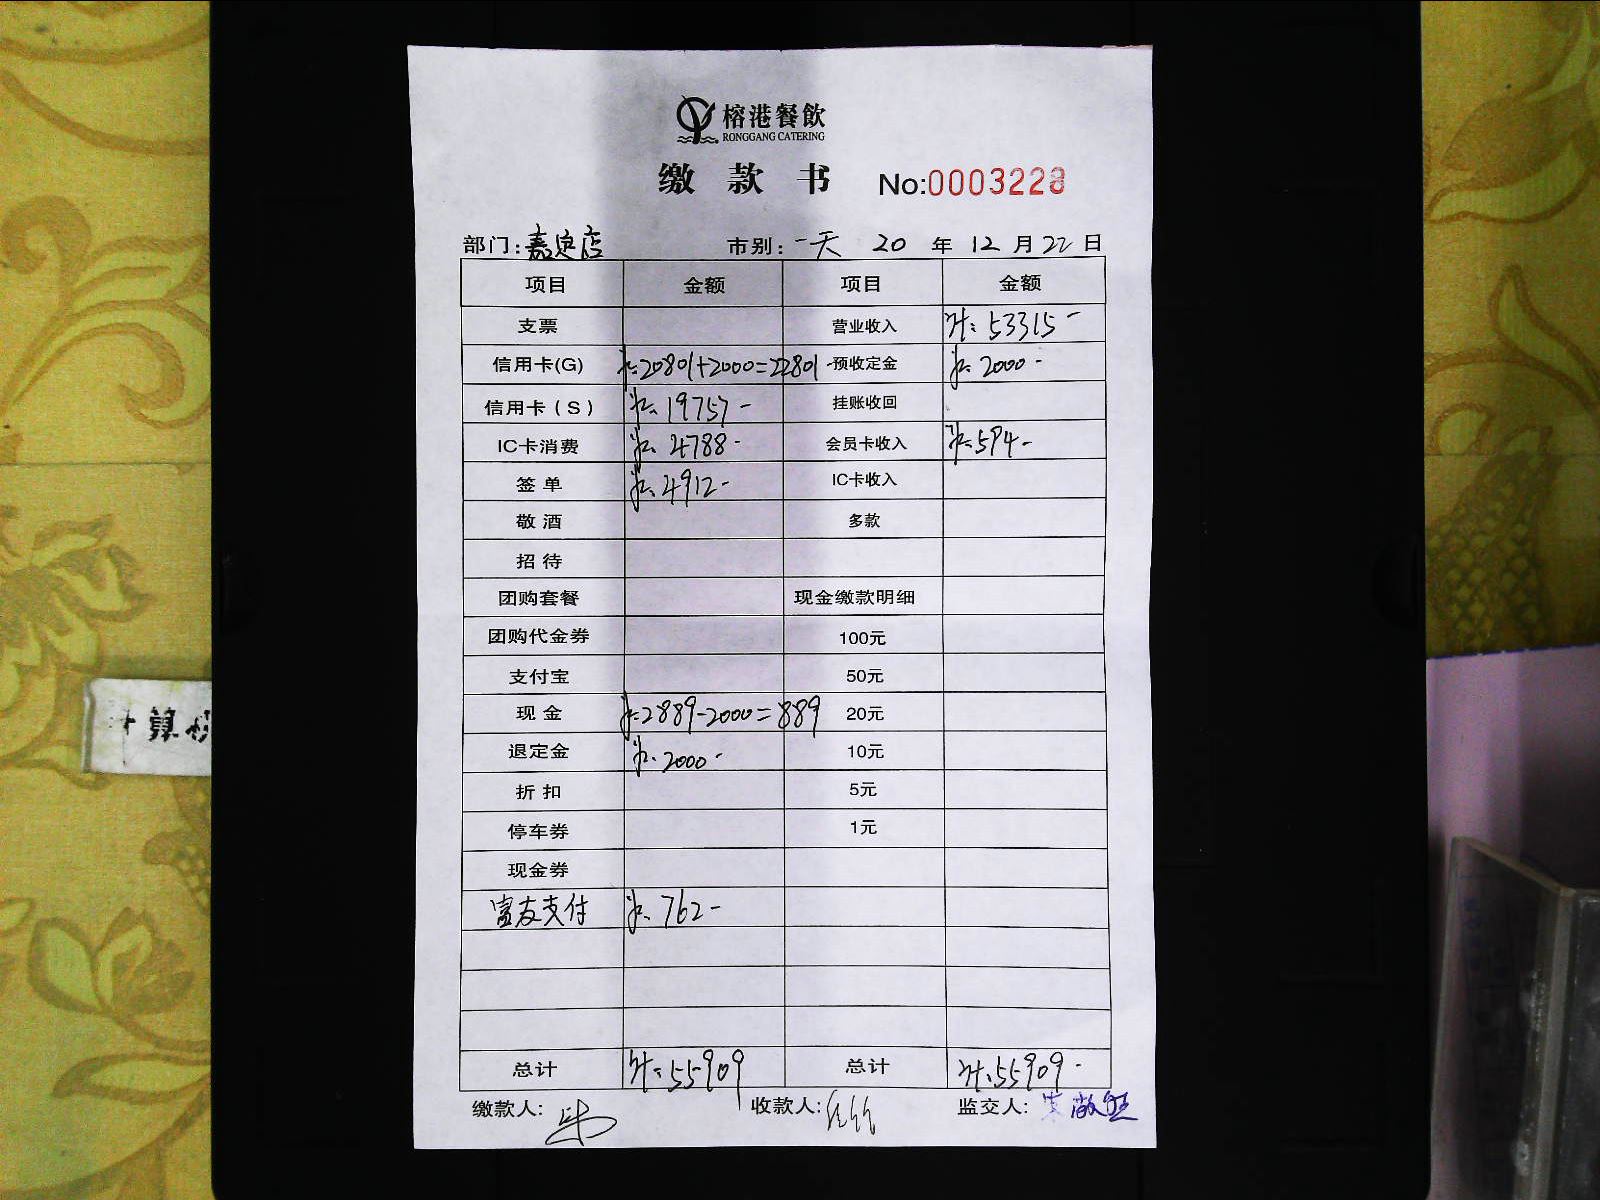 榕港餐飲
RONGGANG CATERING
缴款书 No:0003228
部门:嘉定店 市别:一天 20 年 12 月 22 日
项目 金额 项目 金额
支票 营业收入 计:53315-
信用卡(G) 20801+2000=22801- 预收定金 2000-
信用卡(S) 19757- 挂账收回
IC卡消费 4788- 会员卡收入 594-
签单 4912- IC卡收入
敬酒 多款
招待
团购套餐 现金缴款明细
团购代金券 100元
支付宝 50元
现金 2889-2000=889 20元
退定金 2000- 10元
折扣 5元
停车券 1元
现金券
富友支付 762-
总计 计:55909 总计 计:55909-
缴款人: 收款人: 监交人:
计算机